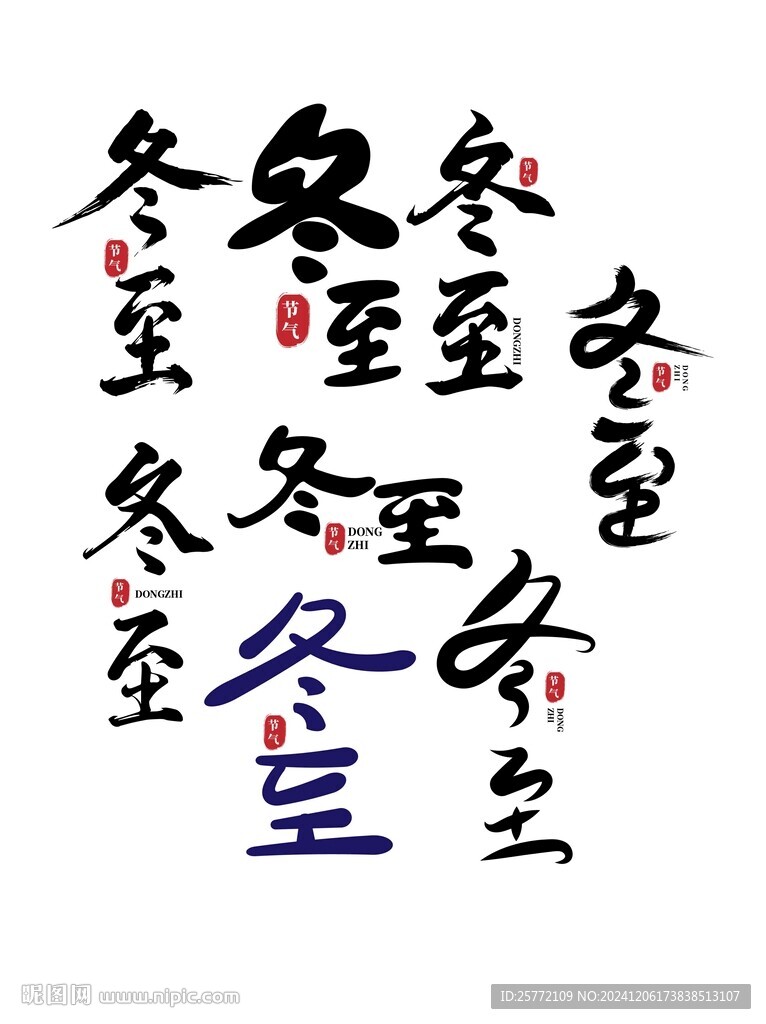 冬至
节气
冬至
节气
冬至
节气
DONGZHI
冬至
节气
DONG
ZHI
冬至
节气
DONGZHI
冬至
节气
DONG
ZHI
冬至
节气
冬至
节气
DONG
ZHI
昵图网 www.nipic.com
ID:25772109 NO:20241206173838513107